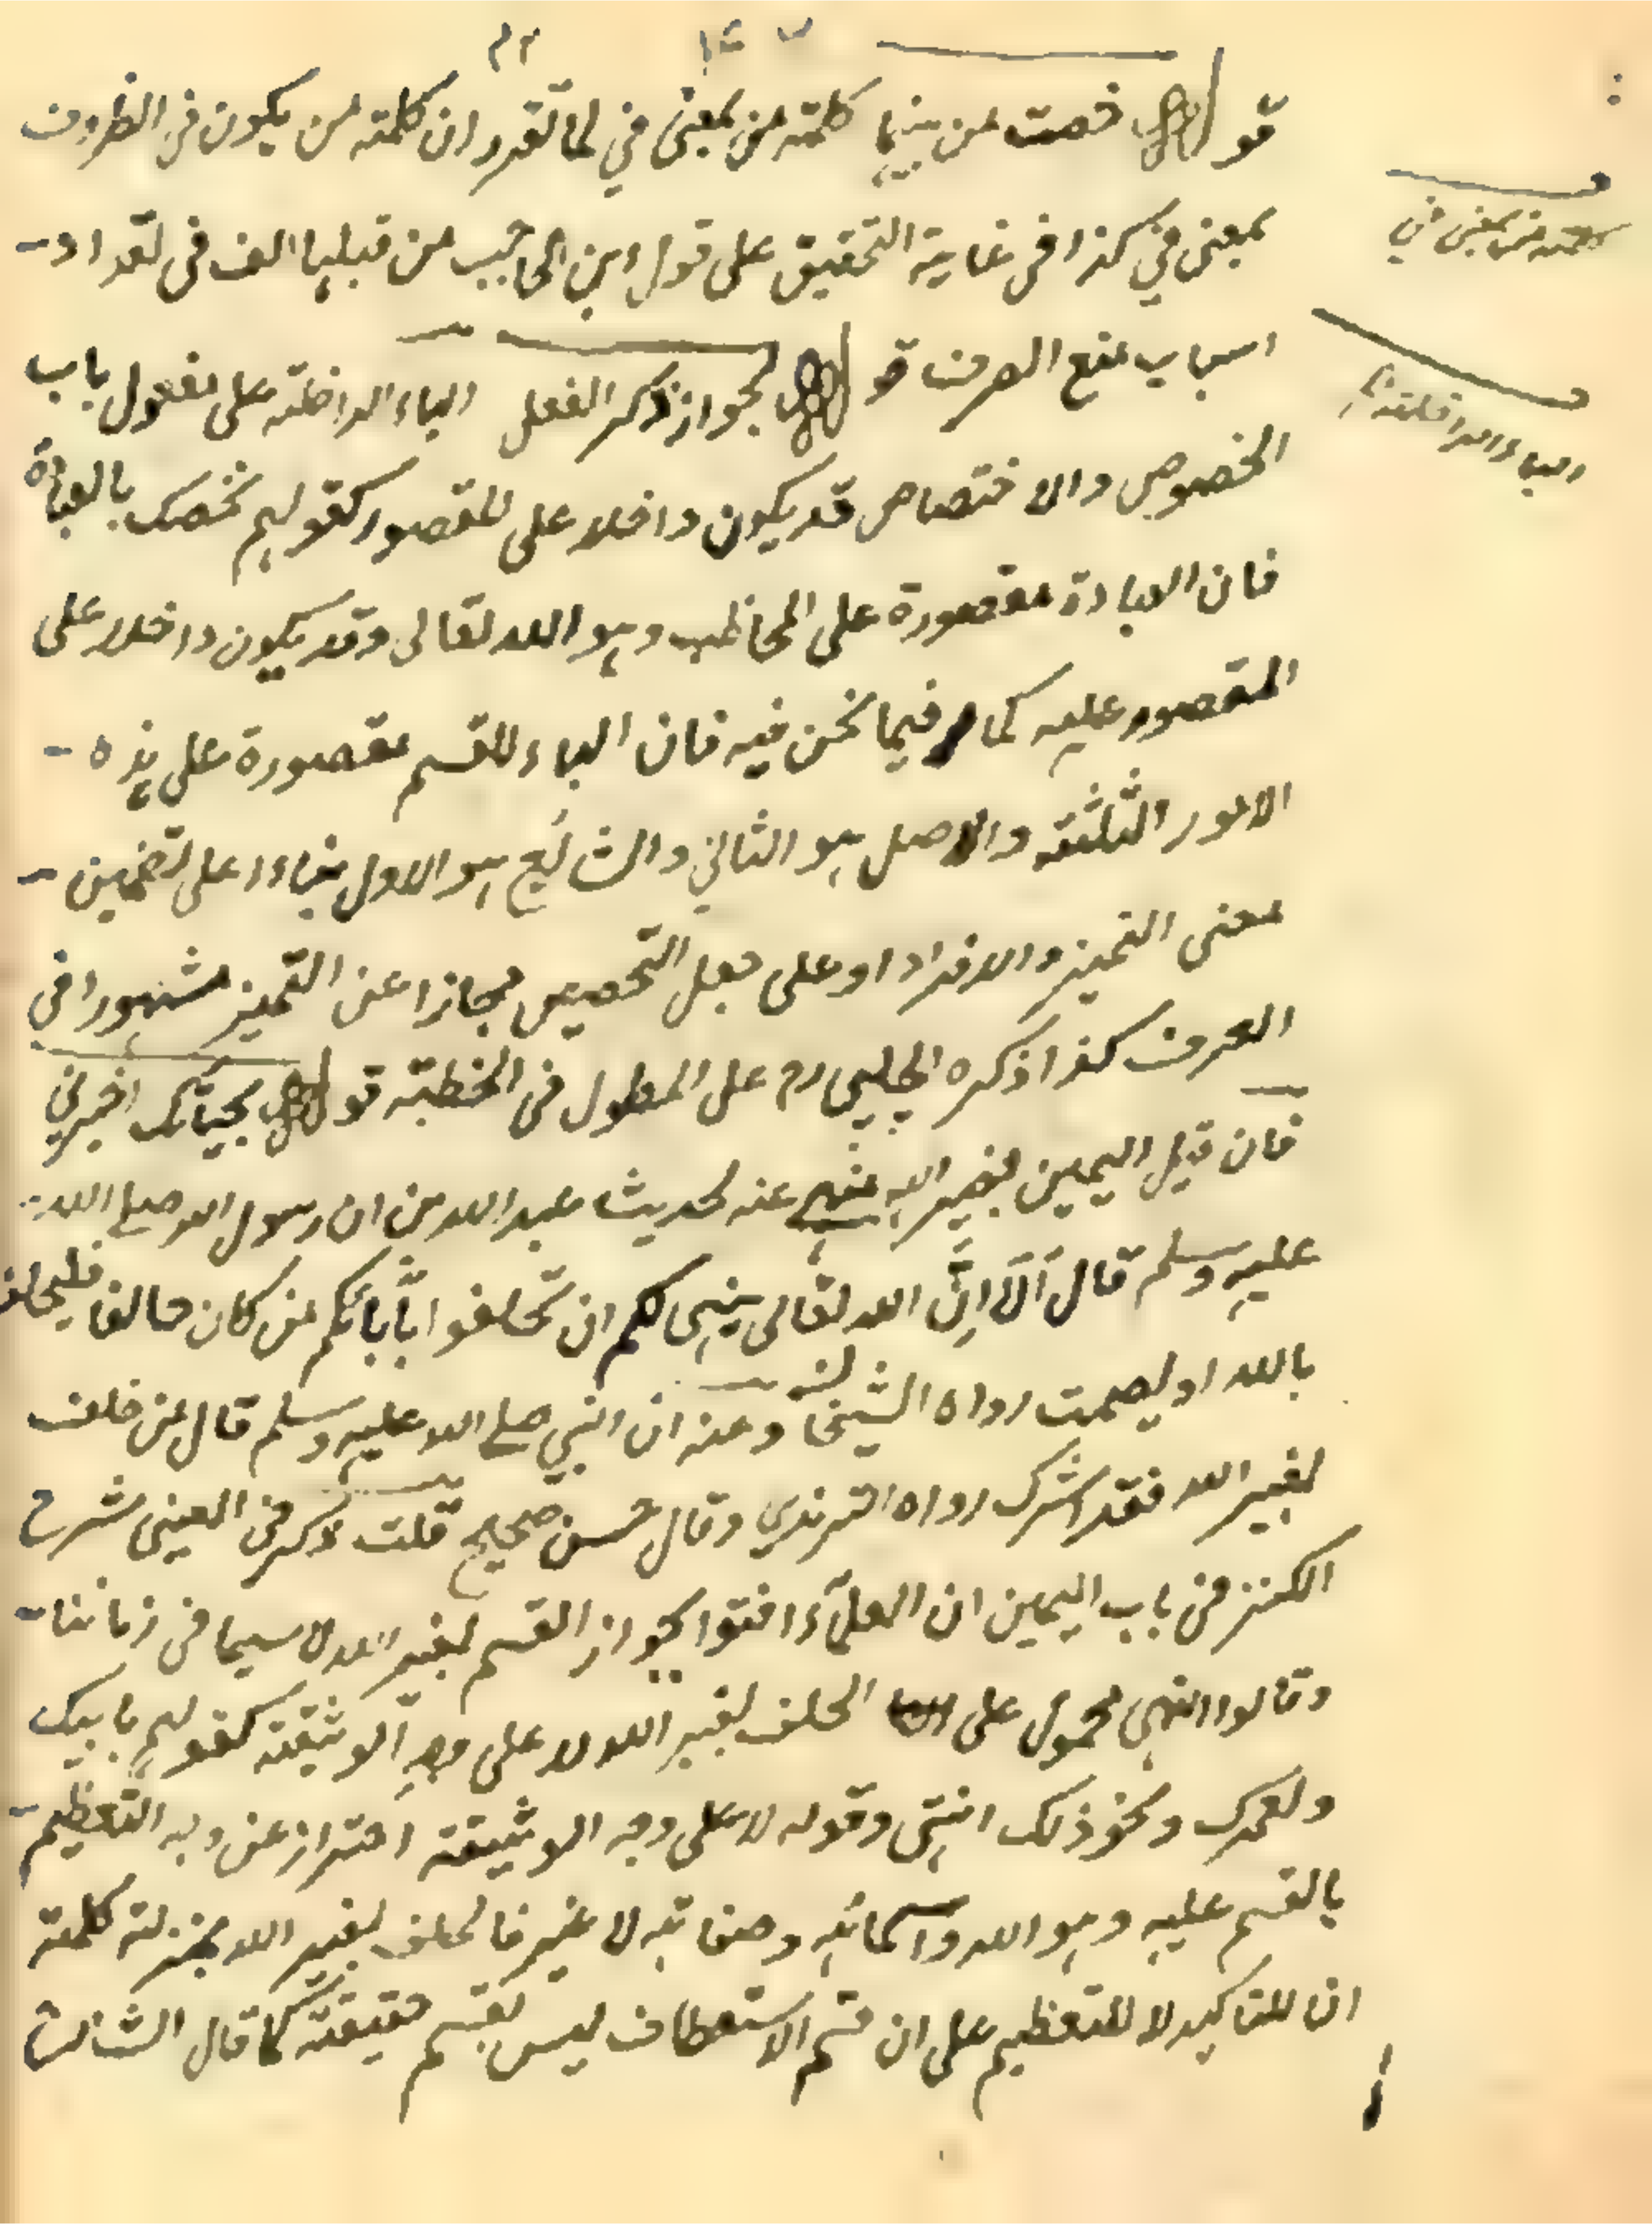 قوله خصت من بينها كلمة من بمعنى في لما تقرر ان كلمة من يكون في الظروف
بمعنى في كذا في غاية التحقيق على قول ابن الحاجب من قبلها الف في تعداد
اسباب منع الصرف قوله لجواز ذكر الفعل الباء الداخلة على مفعول باب
الخصوص والاختصاص قد يكون داخلا على المقصور كقولهم نخصك بالعبادة
فان العبادة مقصورة على المخاطب وهو الله تعالى وقد يكون داخلا على
المقصور عليه كما فيما نحن فيه فان الباء للقسم مقصورة على هذه
الامور الثلثة والاصل هو الثاني والشائع هو الاول بناءا على تضمين
معنى التميز والافراد او على جعل التخصيص مجازا عن التميز مشهورا في
العرف كذا ذكره الچلپي رح على المطول في الخطبة قوله بحياتك اخبرني
فان قيل اليمين بغير الله منهي عنه لحديث عبد الله من ان رسول الله صلى الله
عليه وسلم قال اَلَا اِنَّ الله تعالى ينهى لكم ان تحلفوا بآبائكم من كان حالفا فليحلف
بالله او ليصمت رواه الشيخان وعنه ان النبي صلى الله عليه وسلم قال من حلف
بغير الله فقد اشرك رواه الترمذي وقال حسن صحيح قلت ذكر في العيني شرح
الكنز في باب اليمين ان العلماء افتوا بجواز القسم بغير الله لا سيما في زماننا
وقالوا النهي محمول على الحلف بغير الله لا على وجه الوثيقة كقولهم بابيك
ولعمرك ونحو ذلك انتهى وقوله لا على وجه الوثيقة احتراز عن وجه التعظيم
بالقسم عليه وهو الله واسمائه وصفاته لا غير فالحلف بغير الله بمنزلة كلمة
ان للتاكيد لا للتعظيم على ان قسم الاستعطاف ليس بقسم حقيقة كما قال الشارح
كلمة من بمعنى في
الباء الداخلة